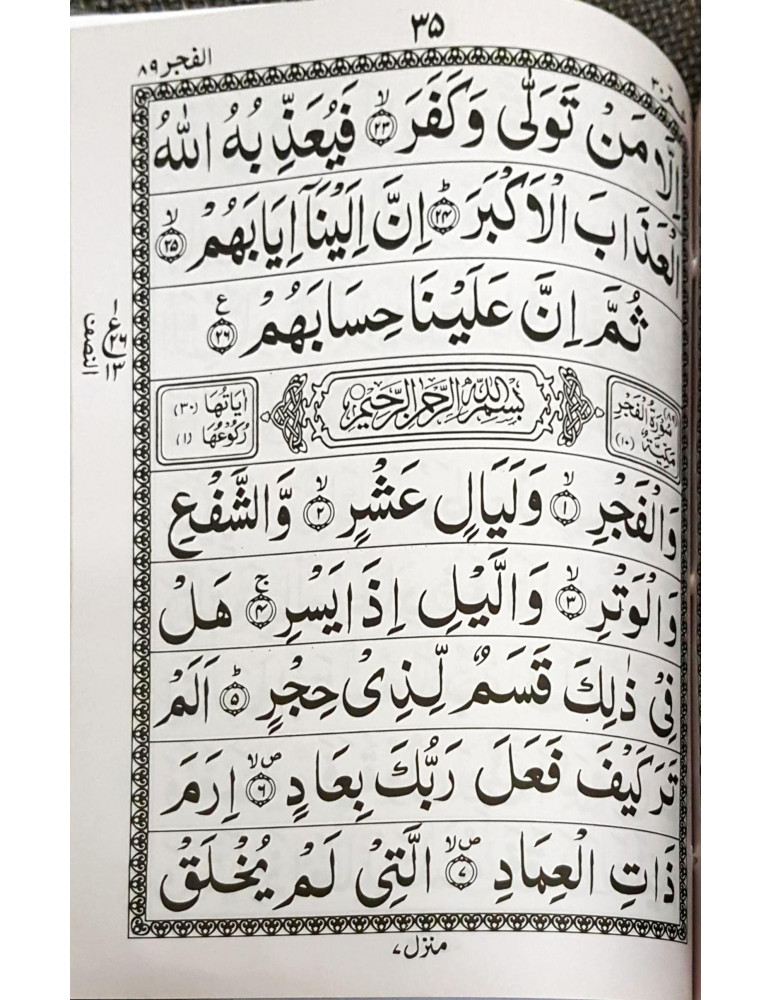 ۳۵
الفجر ۸۹
عم ۳۰
اِلَّا مَنْ تَوَلّٰى وَكَفَرَ ۙ﴿۲۳﴾ فَيُعَذِّبُهُ اللّٰهُ
الْعَذَابَ الْاَكْبَرَ ؕ﴿۲۴﴾ اِنَّ اِلَيْنَاۤ اِيَابَهُمْ ۙ﴿۲۵﴾
ثُمَّ اِنَّ عَلَيْنَا حِسَابَهُمْ ﴿۲۶﴾ ع
النصف
سُوْرَةُ الْفَجْرِ (۸۹) مَكِّيَّةٌ (۱۰)
بِسْمِ اللّٰهِ الرَّحْمٰنِ الرَّحِيْمِ
اٰيَاتُهَا (۳۰) رُكُوْعُهَا (۱)
وَالْفَجْرِ ۙ﴿۱﴾ وَلَيَالٍ عَشْرٍ ۙ﴿۲﴾ وَّالشَّفْعِ
وَالْوَتْرِ ۙ﴿۳﴾ وَالَّيْلِ اِذَا يَسْرِ ۚ﴿۴﴾ هَلْ
فِيْ ذٰلِكَ قَسَمٌ لِّذِيْ حِجْرٍ ؕ﴿۵﴾ اَلَمْ
تَرَ كَيْفَ فَعَلَ رَبُّكَ بِعَادٍ ۪ۙ﴿۶﴾ اِرَمَ
ذَاتِ الْعِمَادِ ۪ۙ﴿۷﴾ الَّتِيْ لَمْ يُخْلَقْ
منزل ۷